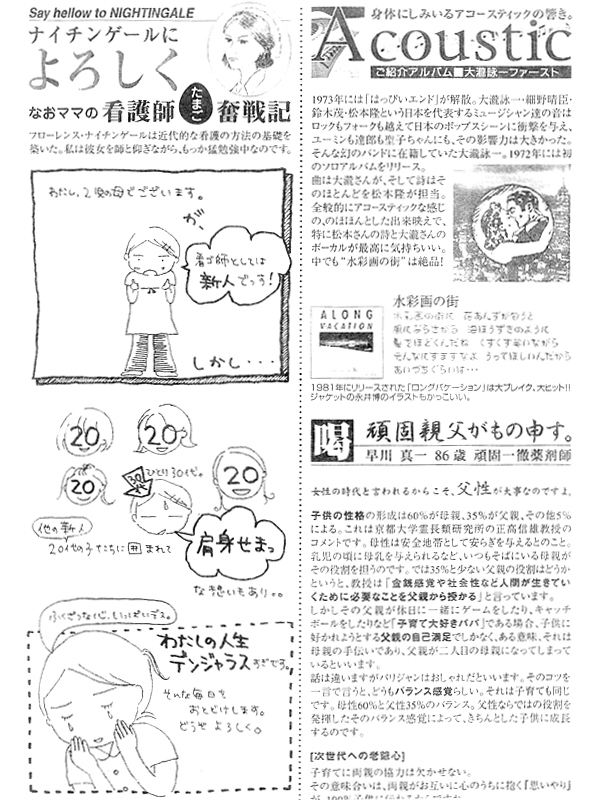 Say hellow to NIGHTINGALE
ナイチンゲールに
よろしく
なおママの 看護師 たまご 奮戦記
フローレンス・ナイチンゲールは近代的な看護の方法の基礎を
築いた。私は彼女を師と仰ぎながら、もっか猛勉強中なのです。
わたし、2児の母でございます。
が、
看ゴ師としては
新人でっす!
しかし・・・
20
20
20
30歳
ひとり30代。
20
他の新人
20代の子たちに囲まれて
肩身せまっ
な想いもあり。。
ふくざつな心、しょっぱいデス。
わたしの人生
デンジャラスすぎです。
そんな毎日を
おとどけします。
どうぞ よろしく。
身体にしみいるアコースティックの響き。
Acoustic
ご紹介アルバム■大瀧詠一ファースト
1973年には「はっぴいエンド」が解散。大瀧詠一・細野晴臣・
鈴木茂・松本隆という日本を代表するミュージシャン達の音は
ロックもフォークも越えて日本のポップスシーンに衝撃を与え、
ユーミンも達郎も聖子ちゃんにも、その影響力は大きかった。
そんな幻のバンドに在籍していた大瀧詠一。1972年には初
のソロアルバムをリリース。
曲は大瀧さんが、そして詩はそ
のほとんどを松本隆が担当。
全般的にアコースティックな感じ
の、のほほんとした出来映えで、
特に松本さんの詩と大瀧さんの
ボーカルが最高に気持ちいい。
中でも“水彩画の街”は絶品!
水彩画の街
水彩画の街 花あんずが匂うと
風にみちから 海ほうずきのように
髪をほどくんだね くすくす笑いながら
そんなにすますなよ うってほしいんだから
あいづちぐらいは…
A LONG
VACATION
1981年にリリースされた「ロングバケーション」は大ブレイク、大ヒット!!
ジャケットの永井博のイラストもかっこいい。
喝 頑固親父がもの申す。
早川 真一 86歳 頑固一徹薬剤師
女性の時代と言われるからこそ、父性が大事なのですよ。
子供の性格の形成は60%が母親、35%が父親、その他5%
による。これは京都大学霊長類研究所の正高信雄教授の
コメントです。母性は安全地帯として安らぎを与えるとのこと。
乳児の頃に母乳を与えられるなど、いつもそばにいる母親が
その役割を担うのです。では35%と少ない父親の役割はどうか
というと、教授は「金銭感覚や社会性など人間が生きてい
くために必要なことを父親から授かる」と言っています。
しかしその父親が休日に一緒にゲームをしたり、キャッチ
ボールをしたりなど「子育て大好きパパ」である場合、子供に
好かれようとする父親の自己満足でしかなく、ある意味、それは
母親の手伝いであり、父親が二人目の母親になってしまって
いるといいます。
話は違いますがパリジャンはおしゃれだといいます。そのコツを
一言で言うと、どうもバランス感覚らしい。それは子育ても同じ
です。母性60%と父性35%のバランス。父性ならではの役割を
発揮したそのバランス感覚によって、きちんとした子供に成長
するのです。
[次世代への老爺心]
子育てに両親の協力は欠かせない。
その意味合いは、両親がお互いに心のうちに抱く『思いやり』